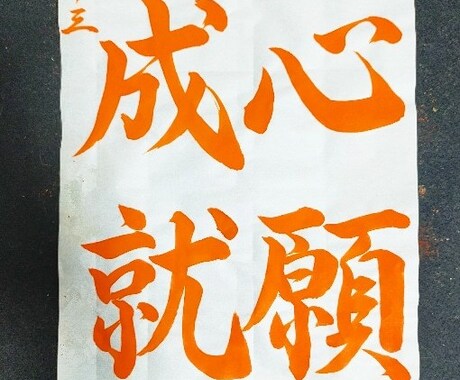 心願
成就
三